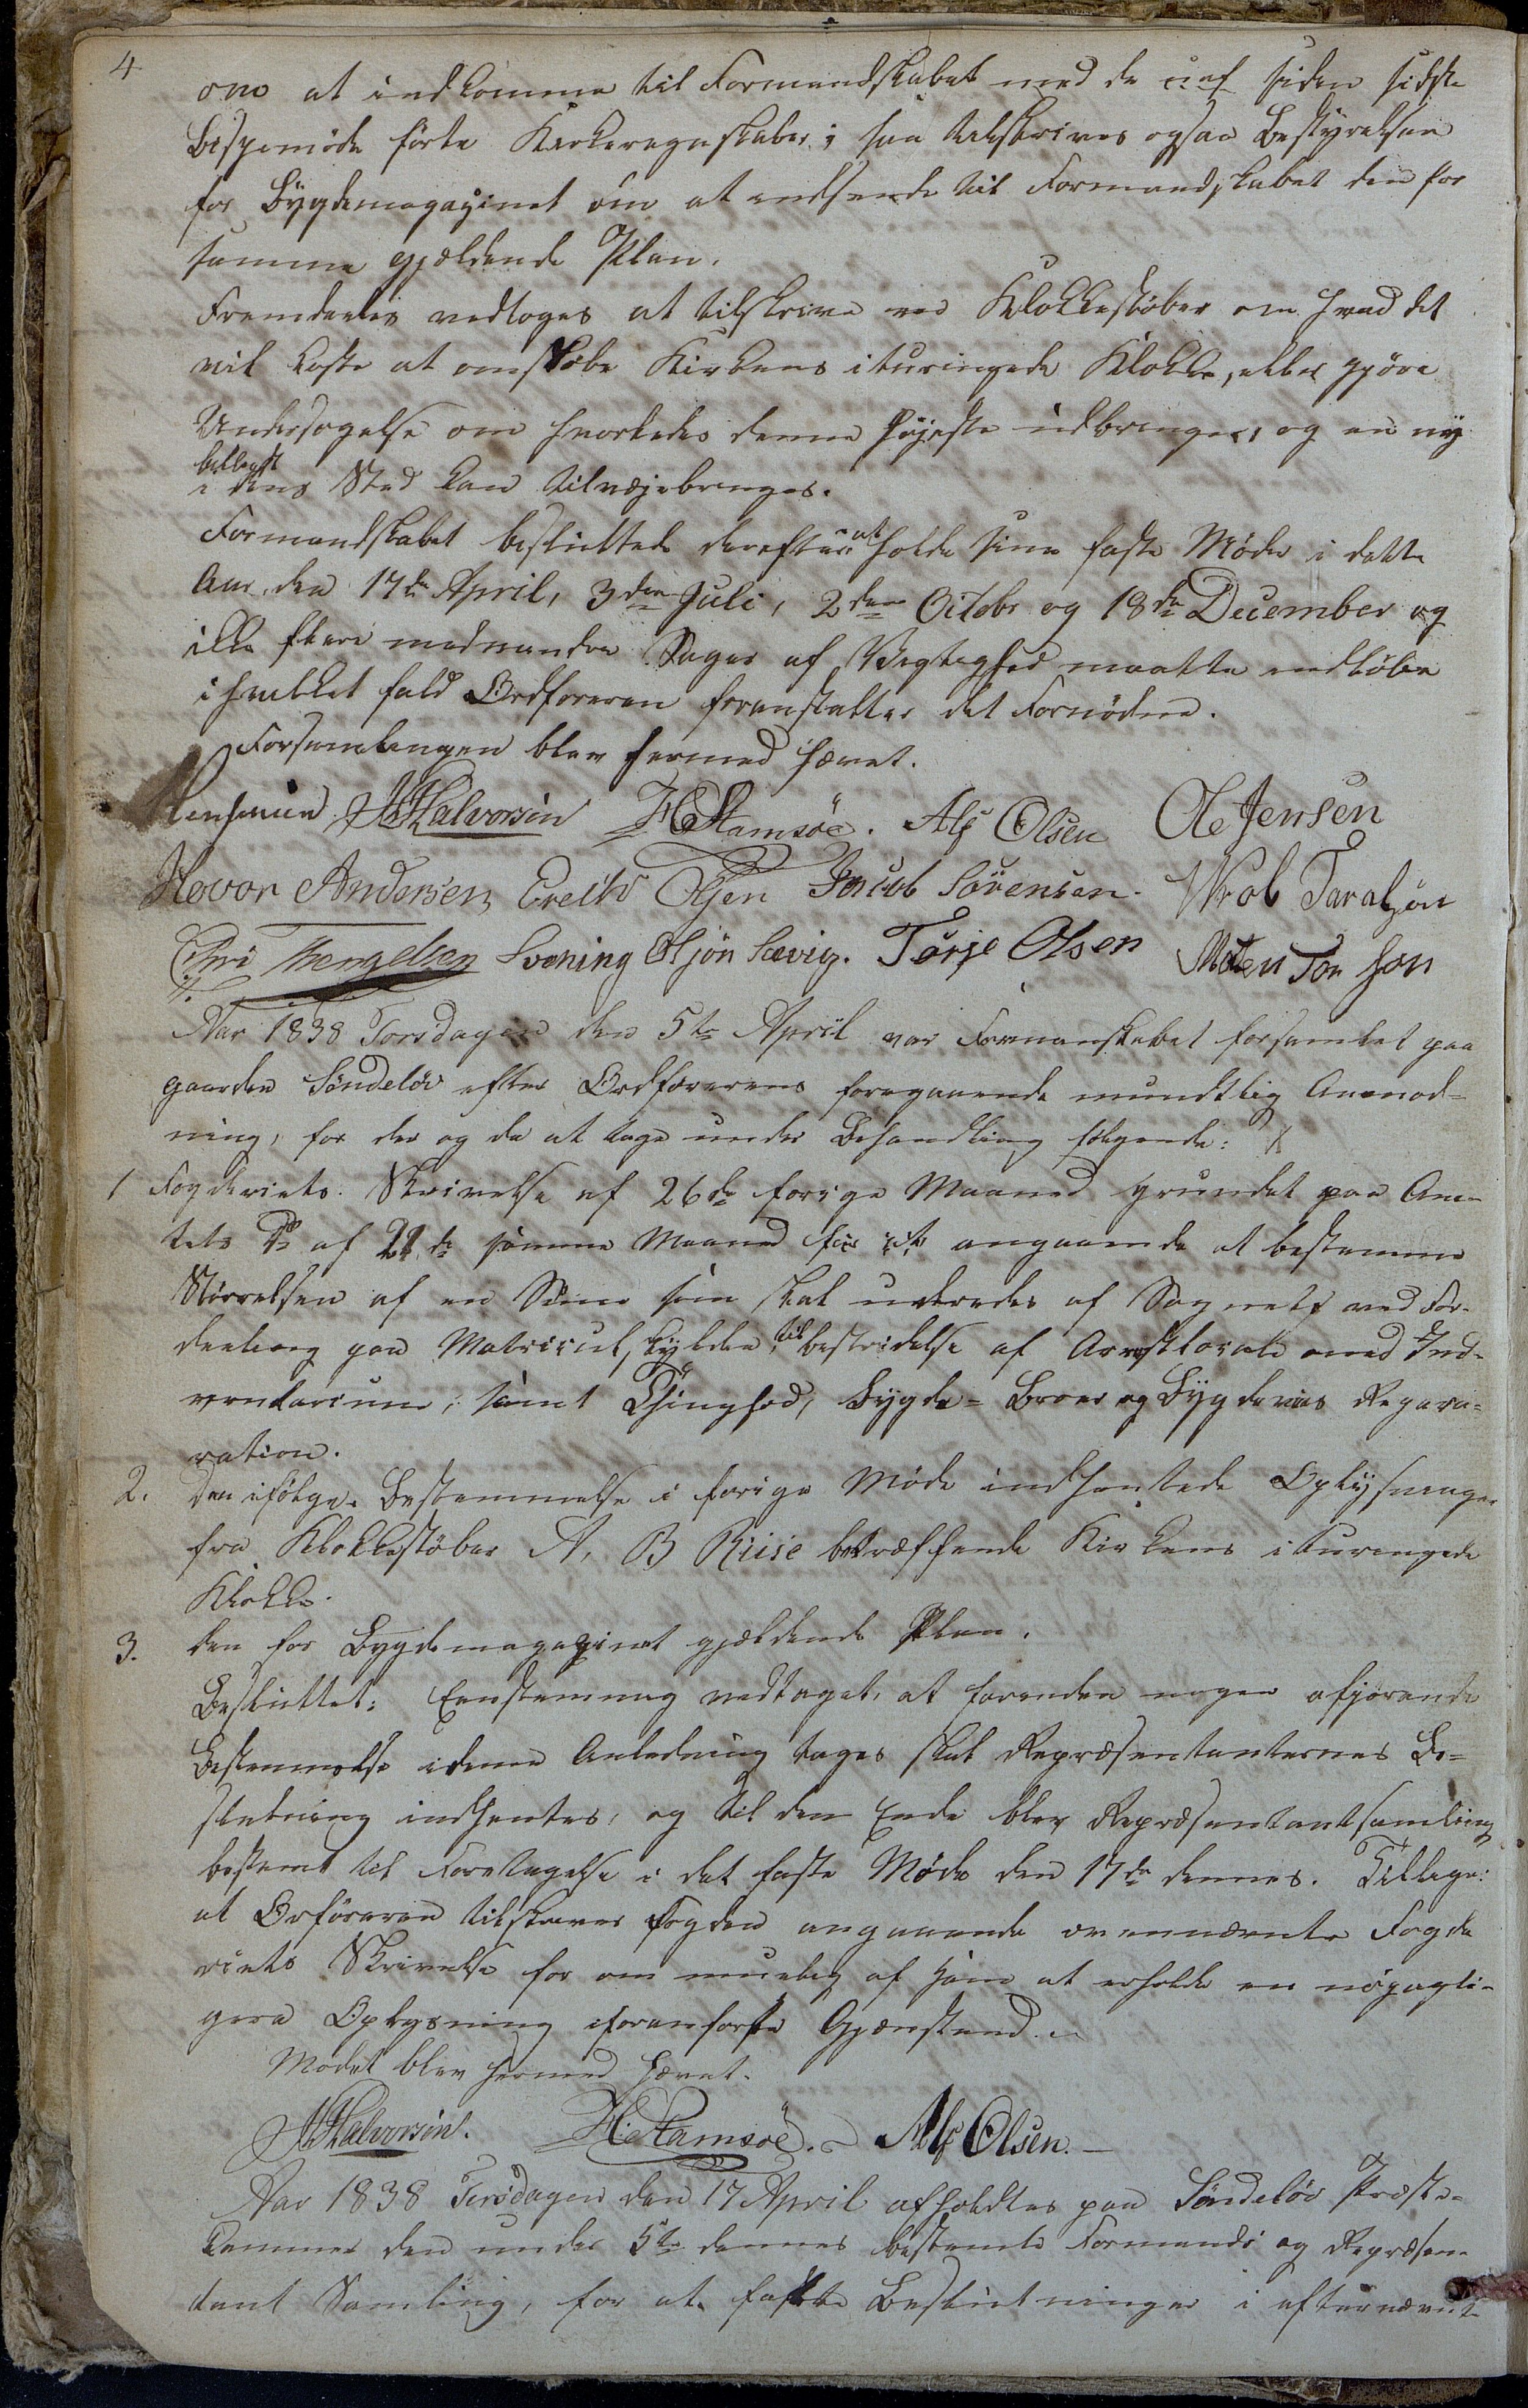 4
om at indkomme til Formandskabet med de siden sidste
Bispemöde förte Kirkeregnskaber; saa tilskrives ogsaa Bestyrelsen
for Bygdemagazinet om at indsende til Formandskabet den for
samme gjældende Plan.
Fremdeeles vedtoges at tilskrive en Klokkestöber om hvad det
vil koste at omstöbe Kirkens ituringede Klokke, eller gjöre
Undersögelse om hvorledes denne höjeste udbringes, og en ny
billigst
i dens Sted kan tilvejebringes.
Formandskabet besluttede derefter at holde sine faste Möder i dette
Aar, den 17de April, 3den Juli, 2den Octobr og 18de December og
ikke flere medmindre Sager af Vigtighed maatte indlöbe
i hvilket fald Ordföreren foranstalter det Fornödne.
Forsamlingen blev hermed hævet.
JHalvorsen HStamsöe. Alf Olsen Ole Jensen
Hovor Andersen Erellv Olsen Jacob Sörensen. Wrob Taralsön
Chri Thengelsen Svening Olsön Sævig. Torje Olsen Moten Ton Son
Aar 1838 Torsdagen den 5te April var Formanskabet forsamlet paa
gaarden Söndelöv efter Ordförerens foregaaende mundtlig Anmod-
ning, for der og da at tage under Behandling fölgende:
1 Fogderiets Skrivelse af 26de forige Maaned grundet paa Am-
tets Do af 22de samme Maaned angaaende at bestemme
Störrelsen af en Sum som skal udredes af Sognets ved For-
deeling paa Matriculskylden, til bestridelse af Arrestlocale med Ind-
ventarium, samt Thinghuus, Bygde-Broer og Bygdeveies Repara-
ration.
2. Den ifölge Bestemmelse i forige Möde indhentede Oplysninger
fra Klokkestöber A. B Riise betræffende Kirkens ituringede
Klokke.
3. den for Bygdemagazinet gjældende Plan.
Besluttet: Eenstemmig vedtaget, at forinden nogen afgjörende
Bestemmelse i denne Anledning tages skal Repræsentanternes Be-
slutning indhentes, og til den Ende blev Repræsentantsamling
bestemt til Foretagelse i det faste Möde den 17de dennes. Tillige:
at Orföreren tilskriver Fogden angaaende ovennævnte Fogde
riets Skrivelse for om muelig af ham at erholde en nöjagti-
gere Oplysning iforanförte Gjenstand.
Mödet blev hermed hævet.
JHalvorsen. H. Stamsöe. Alf Olsen.
Aar 1838 Tirsdagen den 17 April afholdtes paa Söndelöv Præste-
Kammer den under 5te dennes bestemte Formands og Repræsen-
tant Samling, for at fatte Beslutninger i efternævnte